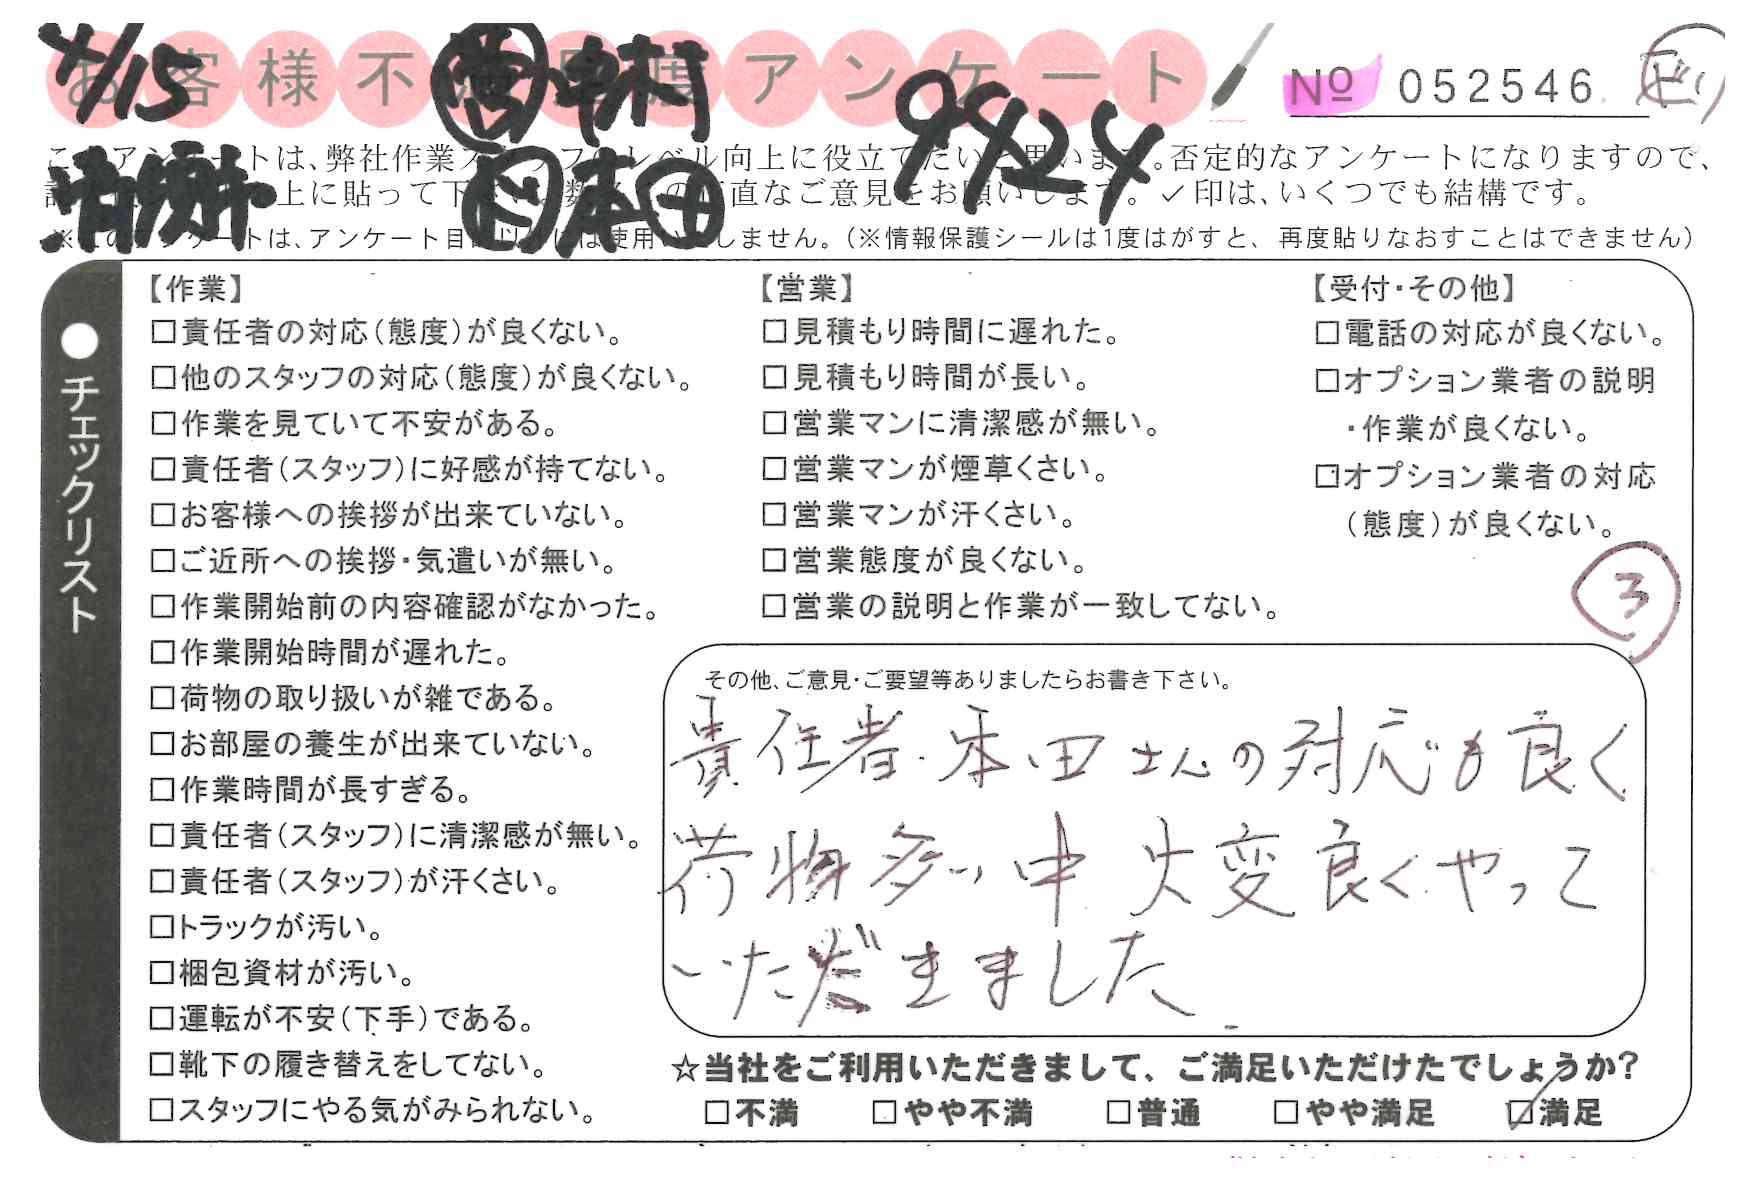 4/15
お客様不満足度アンケート
㊒中村
9424
№ 052546
このアンケートは、弊社作業スタッフのレベル向上に役立てたいと思います。否定的なアンケートになりますので、
上に貼って下さい。
直なご意見をお願いします。✓印は、いくつでも結構です。
本田
※このアンケートは、アンケート目的以外には使用いたしません。（※情報保護シールは1度はがすと、再度貼りなおすことはできません）
●チェックリスト
【作業】
□責任者の対応（態度）が良くない。
□他のスタッフの対応（態度）が良くない。
□作業を見ていて不安がある。
□責任者（スタッフ）に好感が持てない。
□お客様への挨拶が出来ていない。
□ご近所への挨拶・気遣いが無い。
□作業開始前の内容確認がなかった。
□作業開始時間が遅れた。
□荷物の取り扱いが雑である。
□お部屋の養生が出来ていない。
□作業時間が長すぎる。
□責任者（スタッフ）に清潔感が無い。
□責任者（スタッフ）が汗くさい。
□トラックが汚い。
□梱包資材が汚い。
□運転が不安（下手）である。
□靴下の履き替えをしてない。
□スタッフにやる気がみられない。
【営業】
□見積もり時間に遅れた。
□見積もり時間が長い。
□営業マンに清潔感が無い。
□営業マンが煙草くさい。
□営業マンが汗くさい。
□営業態度が良くない。
□営業の説明と作業が一致してない。
【受付・その他】
□電話の対応が良くない。
□オプション業者の説明
・作業が良くない。
□オプション業者の対応
（態度）が良くない。
③
その他、ご意見・ご要望等ありましたらお書き下さい。
責任者・本田さんの対応も良く
荷物多い中大変良くやって
いただきました
☆当社をご利用いただきまして、ご満足いただけたでしょうか?
□不満 □やや不満 □普通 □やや満足 ☑満足